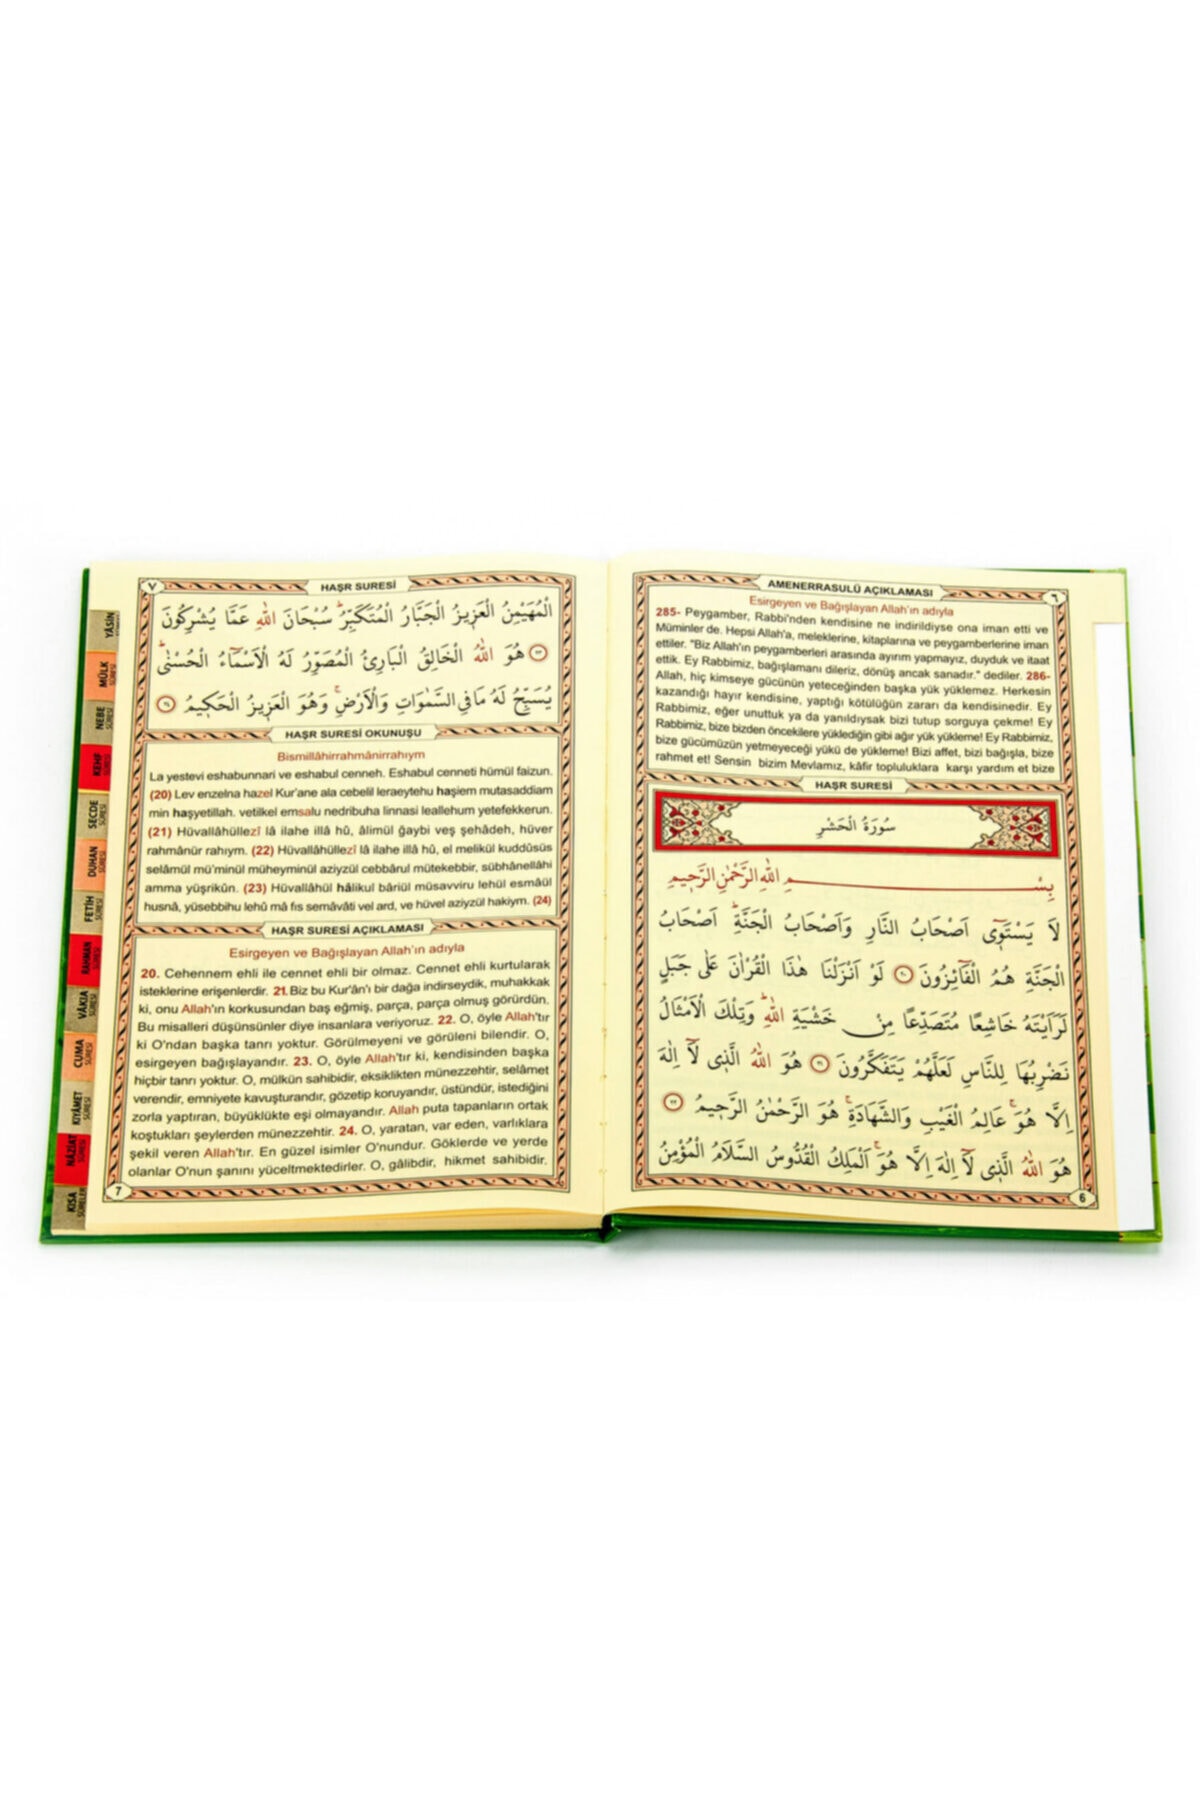 ٦
AMENERRASULÜ AÇIKLAMASI
Esirgeyen ve Bağışlayan Allah'ın adıyla
285- Peygamber, Rabbi'nden kendisine ne indirildiyse ona iman etti ve
Müminler de. Hepsi Allah'a, meleklerine, kitaplarına ve peygamberlerine iman
ettiler. "Biz Allah'ın peygamberleri arasında ayırım yapmayız, duyduk ve itaat
ettik. Ey Rabbimiz, bağışlamanı dileriz, dönüş ancak sanadır." dediler. 286-
Allah, hiç kimseye gücünün yeteceğinden başka yük yüklemez. Herkesin
kazandığı hayır kendisine, yaptığı kötülüğün zararı da kendisinedir. Ey
Rabbimiz, eğer unuttuk ya da yanıldıysak bizi tutup sorguya çekme! Ey
Rabbimiz, bize bizden öncekilere yüklediğin gibi ağır yük yükleme! Ey Rabbimiz,
bize gücümüzün yetmeyeceği yükü de yükleme! Bizi affet, bizi bağışla, bize
rahmet et! Sensin bizim Mevlamız, kâfir topluluklara karşı yardım et bize
HAŞR SURESİ
سُورَةُ الْحَشْرِ
بِسْــــــمِ اللّٰهِ الرَّحْمٰنِ الرَّحٖيمِ
لَا يَسْتَوٖٓى اَصْحَابُ النَّارِ وَاَصْحَابُ الْجَنَّةِؕ اَصْحَابُ
الْجَنَّةِ هُمُ الْفَٓائِزُونَ ﴿٢٠﴾ لَوْ اَنْزَلْنَا هٰذَا الْقُرْاٰنَ عَلٰى جَبَلٍ
لَرَاَيْتَهُ خَاشِعًا مُتَصَدِّعًا مِنْ خَشْيَةِ اللّٰهِؕ وَتِلْكَ الْاَمْثَالُ
نَضْرِبُهَا لِلنَّاسِ لَعَلَّهُمْ يَتَفَكَّرُونَ ﴿٢١﴾ هُوَ اللّٰهُ الَّذٖى لَٓا اِلٰهَ
اِلَّا هُوَۚ عَالِمُ الْغَيْبِ وَالشَّهَادَةِۚ هُوَ الرَّحْمٰنُ الرَّحٖيمُ ﴿٢٢﴾
هُوَ اللّٰهُ الَّذٖى لَٓا اِلٰهَ اِلَّا هُوَۚ اَلْمَلِكُ الْقُدُّوسُ السَّلَامُ الْمُؤْمِنُ
6
٧
HAŞR SURESİ
الْمُهَيْمِنُ الْعَزٖيزُ الْجَبَّارُ الْمُتَكَبِّرُؕ سُبْحَانَ اللّٰهِ عَمَّا يُشْرِكُونَ
﴿٢٣﴾ هُوَ اللّٰهُ الْخَالِقُ الْبَارِئُ الْمُصَوِّرُ لَهُ الْاَسْمَٓاءُ الْحُسْنٰىؕ
يُسَبِّحُ لَهُ مَا فِى السَّمٰوَاتِ وَالْاَرْضِۚ وَهُوَ الْعَزٖيزُ الْحَكٖيمُ ﴿٢٤﴾
HAŞR SURESİ OKUNUŞU
Bismillâhirrahmânirrahıym
La yestevi eshabunnari ve eshabul cenneh. Eshabul cenneti hümül faizun.
(20) Lev enzelna hazel Kur'ane ala cebelil leraeytehu haşiem mutasaddiam
min haşyetillah. vetilkel emsalu nedribuha linnasi leallehum yetefekkerun.
(21) Hüvallâhüllezî lâ ilahe illâ hû, âlimül ğaybi veş şehâdeh, hüver
rahmânür rahıym. (22) Hüvallâhüllezî lâ ilahe illâ hû, el melikül kuddûsüs
selâmül mü'minül müheyminül aziyzül cebbârul mütekebbir, sübhânellâhi
amma yüşrikûn. (23) Hüvallâhül hâlikul bâriül müsavviru lehül esmâül
husnâ, yüsebbihu lehû mâ fis semâvâti vel ard, ve hüvel aziyzül hakiym. (24)
HAŞR SURESİ AÇIKLAMASI
Esirgeyen ve Bağışlayan Allah'ın adıyla
20. Cehennem ehli ile cennet ehli bir olmaz. Cennet ehli kurtularak
isteklerine erişenlerdir. 21. Biz bu Kur'ân'ı bir dağa indirseydik, muhakkak
ki, onu Allah'ın korkusundan baş eğmiş, parça, parça olmuş görürdün.
Bu misalleri düşünsünler diye insanlara veriyoruz. 22. O, öyle Allah'tır
ki O'ndan başka tanrı yoktur. Görülmeyeni ve görüleni bilendir. O,
esirgeyen bağışlayandır. 23. O, öyle Allah'tır ki, kendisinden başka
hiçbir tanrı yoktur. O, mülkün sahibidir, eksiklikten münezzehtir, selâmet
verendir, emniyete kavuşturandır, gözetip koruyandır, üstündür, istediğini
zorla yaptıran, büyüklükte eşi olmayandır. Allah puta tapanların ortak
koştukları şeylerden münezzehtir. 24. O, yaratan, var eden, varlıklara
şekil veren Allah'tır. En güzel isimler O'nundur. Göklerde ve yerde
olanlar O'nun şanını yüceltmektedirler. O, gâlibdir, hikmet sahibidir.
7
YÂSİN
MÜLK SÛRESİ
NEBE SÛRESİ
KEHF SÛRESİ
SECDE SÛRESİ
DUHAN SÛRESİ
FETİH SÛRESİ
RAHMAN SÛRESİ
VÂKIA SÛRESİ
CUMA SÛRESİ
KIYÂMET SÛRESİ
NÂZİAT SÛRESİ
KISA SÛRELER